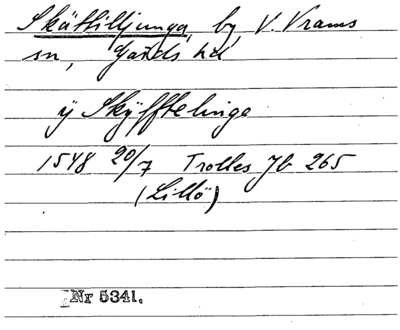 Skättilljunga, by, V. Vrams
sn, Gärds hd
ÿ Skÿfftelinge
1548 20/7 Trolles Jb 265
(Lillö)
Nr 5341.